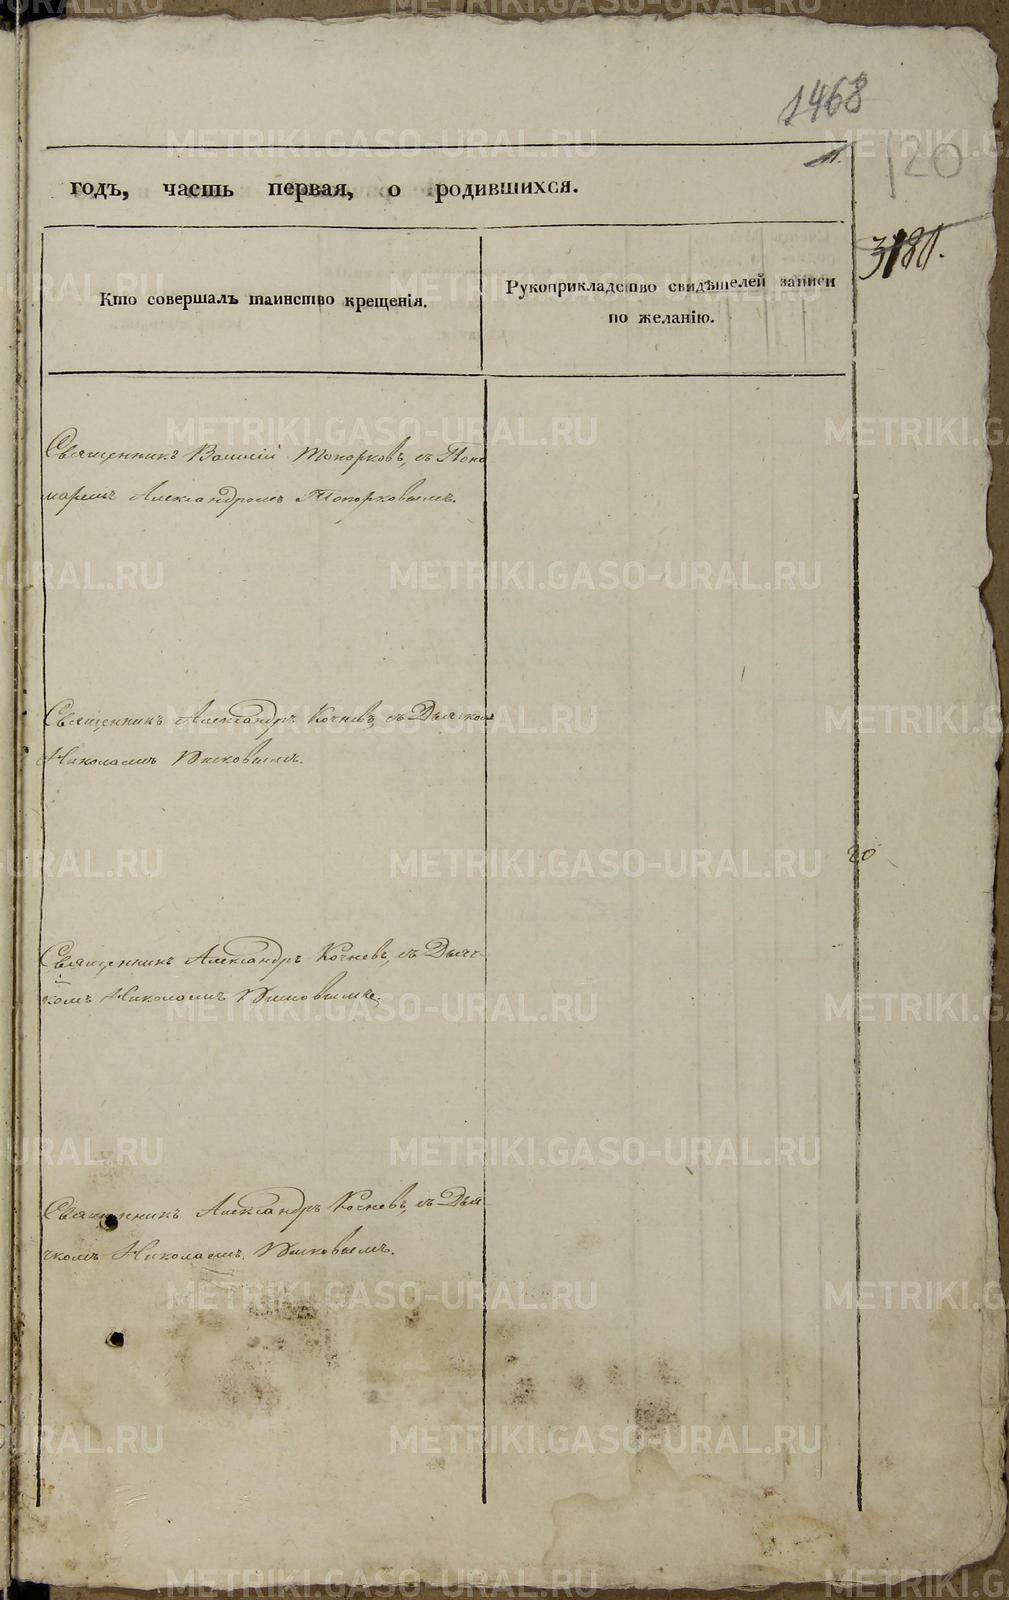 1468
120
11.
годъ, часть первая, о родившихся.
3180.
Кто совершалъ таинство крещенія.
Рукоприкладство свидѣтелей записи
по желанію.
Священникъ Топорковъ, съ Поно
маремъ Александромъ Топорковымъ.
Священникъ Александръ Кочневъ, съ Дьячкомъ
Николаемъ
20
Священникъ Александръ Кочневъ, съ Дьяч-
комъ Николаемъ
Священникъ Александръ Кочневъ, съ Дья-
чкомъ Николаемъ
METRIKI.GASO-URAL.RU